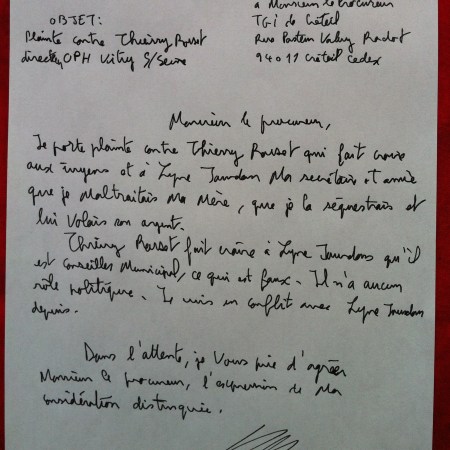 à Monsieur le Procureur
OBJET:
TGI de Créteil
Plainte contre Thierry Rasset
Rue Pasteur Valery Radot
directeur OPH Vitry S/Seine
94011 Créteil cedex
Monsieur le procureur,
Je porte plainte contre Thierry Rasset qui fait croire
aux voyous et à Lyne Jaurdon Ma secrétaire et amie
que je Maltraitais Ma Mère, que je la séquestrais et
lui Volais son argent.
Thierry Rasset fait croire à Lyne Jaurdons qu'il
est Conseiller Municipal, ce qui est faux. Il n'a aucun
rôle politique. Je suis en conflit avec Lyne Jaurdon
depuis.
Dans l'attente, je Vous prie d'agréer
Monsieur le procureur, l'expression de Ma
considération distinguée.